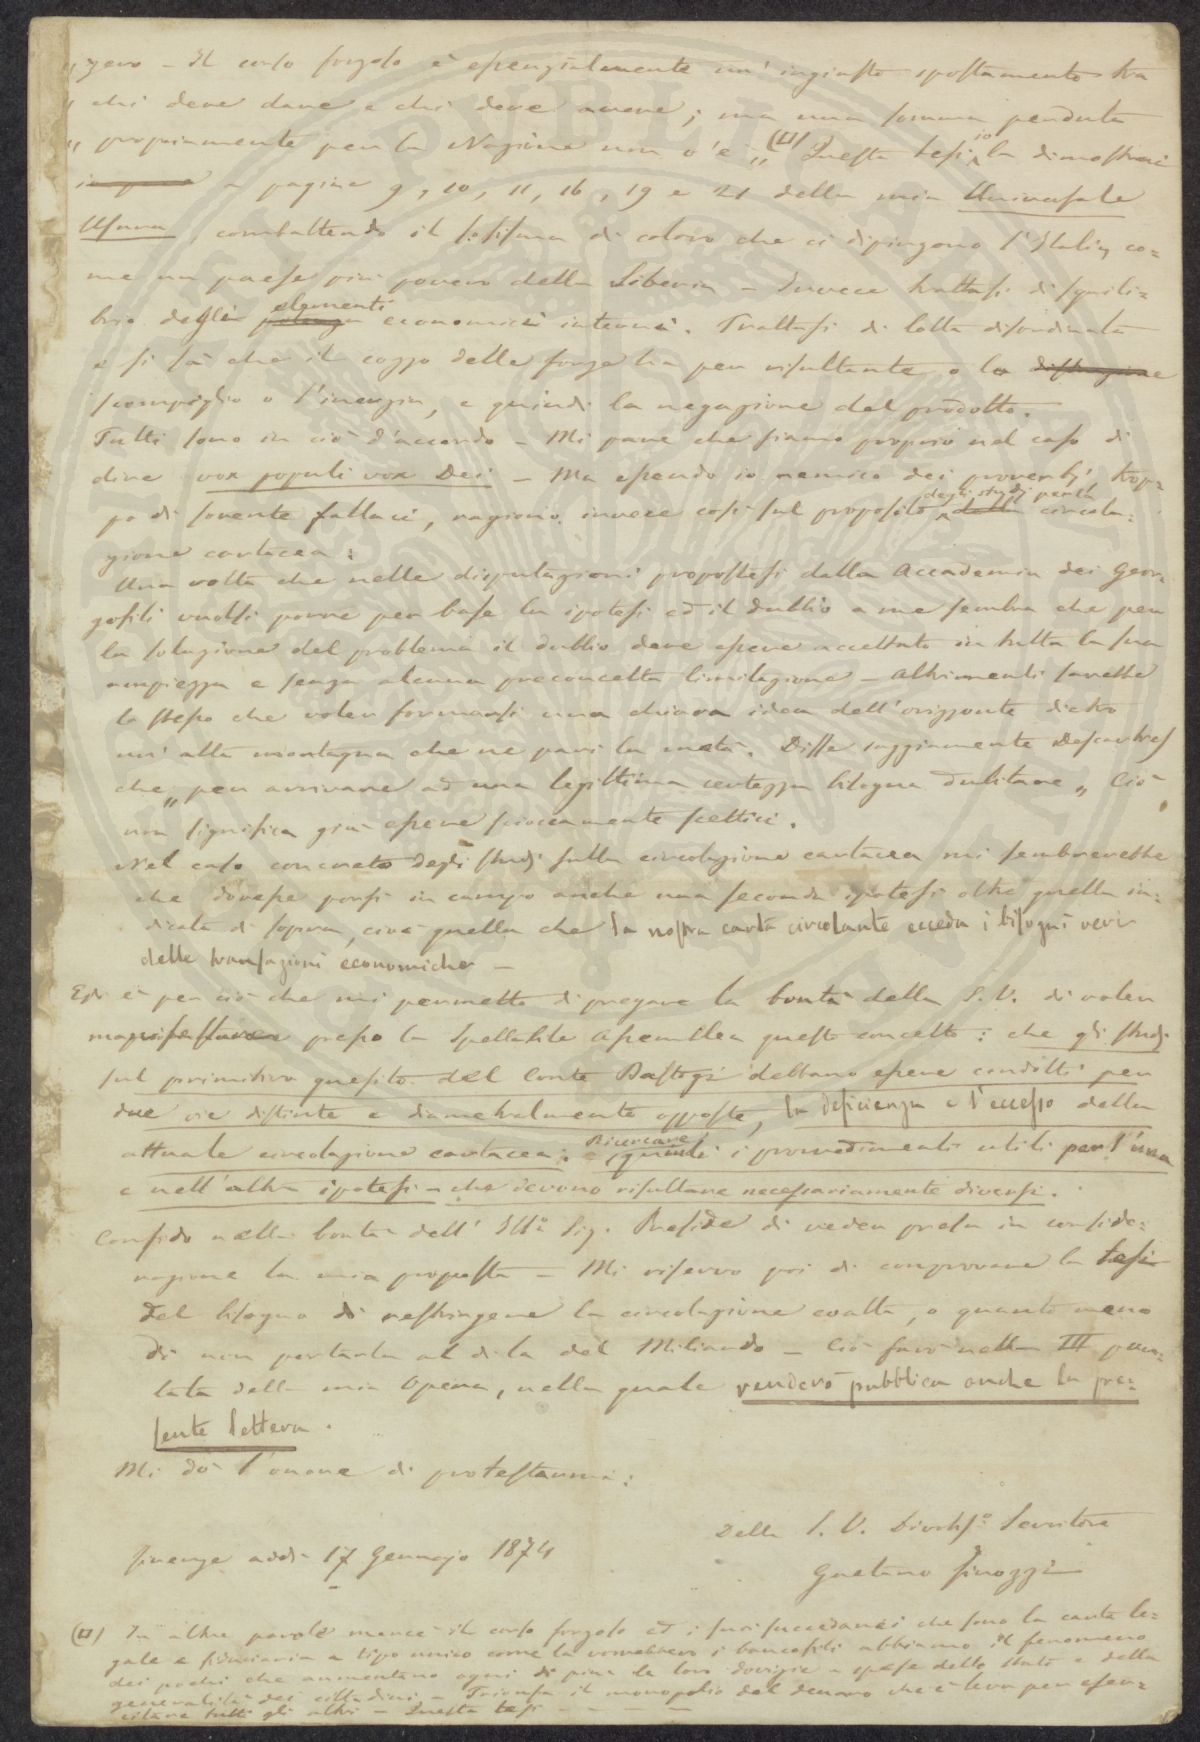 „ zero - Il corso forzoso è essenzialmente un' ingiusto spostamento tra
„ chi deve dare e chi deve avere; ma una somma perduta
„ propriamente per la Nazione non v'è „ (□) Questa tesi io la dimostrai
a pagine 9, 10, 11, 16, 19 e 21 della mia Universale
Usura, combattendo il sofisma di coloro che ci dipingono l'Italia co=
me un paese più povero della Siberia - Invece trattasi di squili=
brio degli elementi economici interni. Trattasi di lotta disordinata
e si sà che il cozzo delle forze ha per risultante o lo distruzione
scompiglio o l'inerzia, e quindi la negazione del prodotto.
Tutti sono in ciò d'accordo - Mi pare che siamo proprio nel caso di
dire vox populi vox Dei - Ma essendo io nemico dei proverbj trop=
po di sovente fallaci, ragiono invece così sul proposito degli studj per la della circola=
zione cartacea:
Una volta che nelle disputazioni propostesi dalla Accademia dei Geor=
gofili vuolsi porre per base la ipotesi ed il dubbio a me sembra che per
la soluzione del problema il dubbio deve essere accettato in tutta la sua
ampiezza e senza alcuna preconcetta limitazione - Altrimenti sarebbe
lo stesso che voler formarsi una chiara idea dell'orizzonte dietro
un' alta montagna che ne pari la metà. Disse saggiamente Descartes
che „ per arrivare ad una legittima certezza bisogna dubitare „ Ciò
non significa già essere scioccamente scettici.
Nel caso concreto degli studj sulla circolazione cartacea mi sembrerebbe
che dovesse porsi in campo anche una seconda ipotesi oltre quella in=
dicata di sopra, cioè quella che la nostra carta circolante ecceda i bisogni veri
delle transazioni economiche -
Egli è per ciò che mi permetto di pregare la bontà della S. V. di voler
manifestare presso la Spettabile Assemblea questo concetto: che gli studj
sul primitivo quesito del Conte Bastogi debbano essere condotti per
due vie distinte e diametralmente opposte, la deficienza e l'eccesso della
attuale circolazione cartacea: e Ricercare quindi i provvedimenti utili per l'una
e nell'altra ipotesi - che devono risultare necessariamente diversi.
Confido nella bontà dell' Ill.o Sig. Preside di veder presa in conside=
razione la mia proposta - Mi riservo poi di comprovare la tesi
del bisogno di restringere la circolazione coatta, o quanto meno
di non portarla al di la del Miliardo - Ciò farò nella III pun=
tata della mia Opera, nella quale renderò pubblica anche la pre=
sente lettera.
Mi dò l'onore di protestarmi:
Della S. V. Divotis.o Servitore
Firenze addì 17 Gennajo 1874
Gaetano Pinozzi
(□) In altre parole mercè il corso forzoso ed i suoi succedanei che sono la carta le=
gale e fiduciaria a tipo unico come la vorrebbero i bancofili abbiamo il fenomeno
dei pochi che aumentano ogni dì più le loro dovizie a spese dello Stato e della
generalità dei cittadini - Trionfa il monopolio del denaro che è leva per eser=
citare tutti gli altri - Questa tesi - - - -